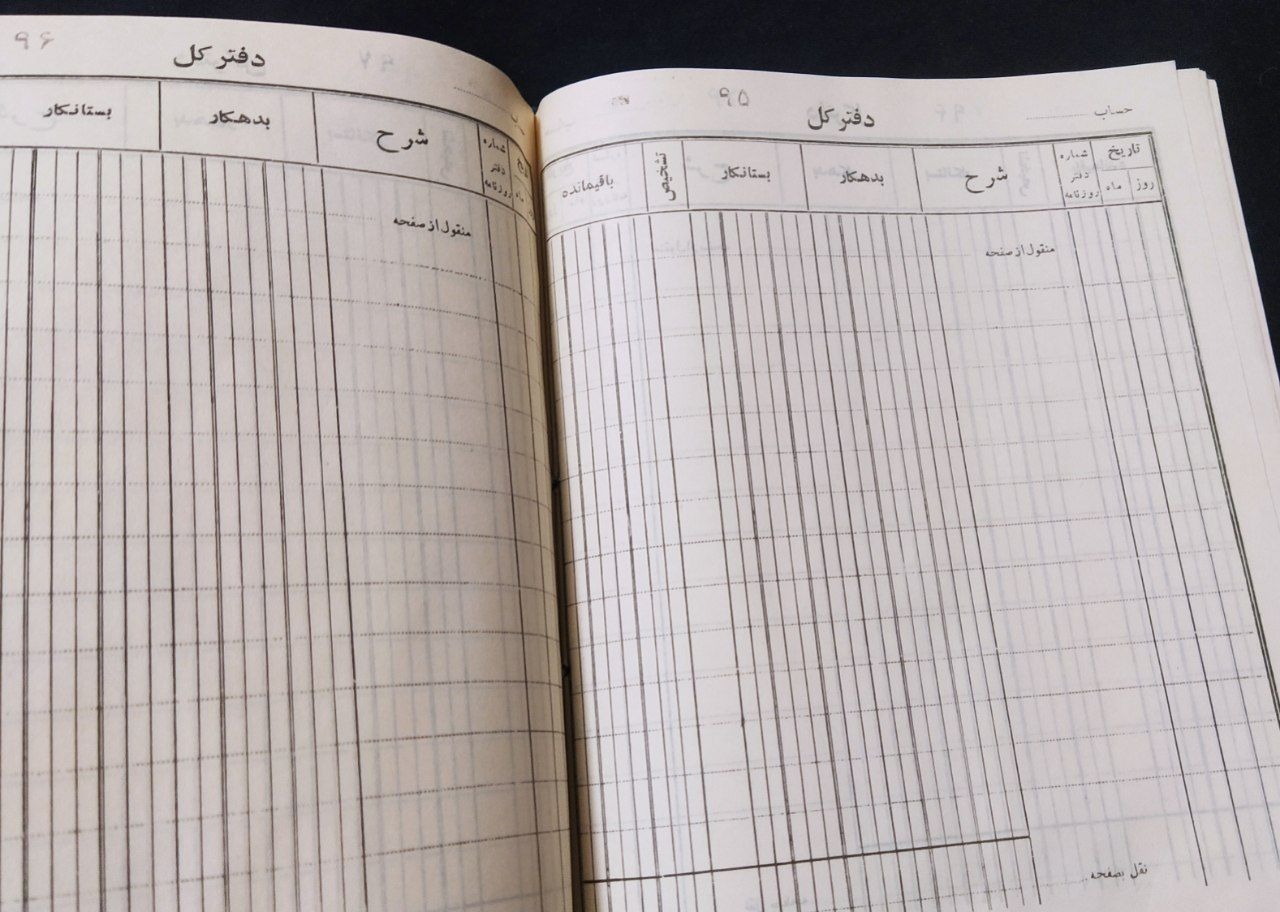 ۹۵
دفتر کل
حساب
تاریخ
روز
ماه
شماره
دفتر
روزنامه
شرح
بدهکار
بستانکار
تشخیص
باقیمانده
منقول از صفحه
نقل بصفحه
۹۶
دفتر کل
ماه
شماره
دفتر
روزنامه
شرح
بدهکار
بستانکار
منقول از صفحه